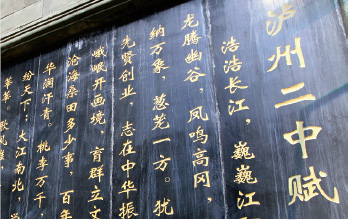 泸州二中赋
浩浩长江，巍巍江
龙腾幽谷，凤鸣高冈，
纳万象，葱茏一方。犹
先贤创业，志在中华振
峨岷开画境，育群立
沧海桑田多少事，百年
华润汗青。桃李万千，
纷天下，大江南北，